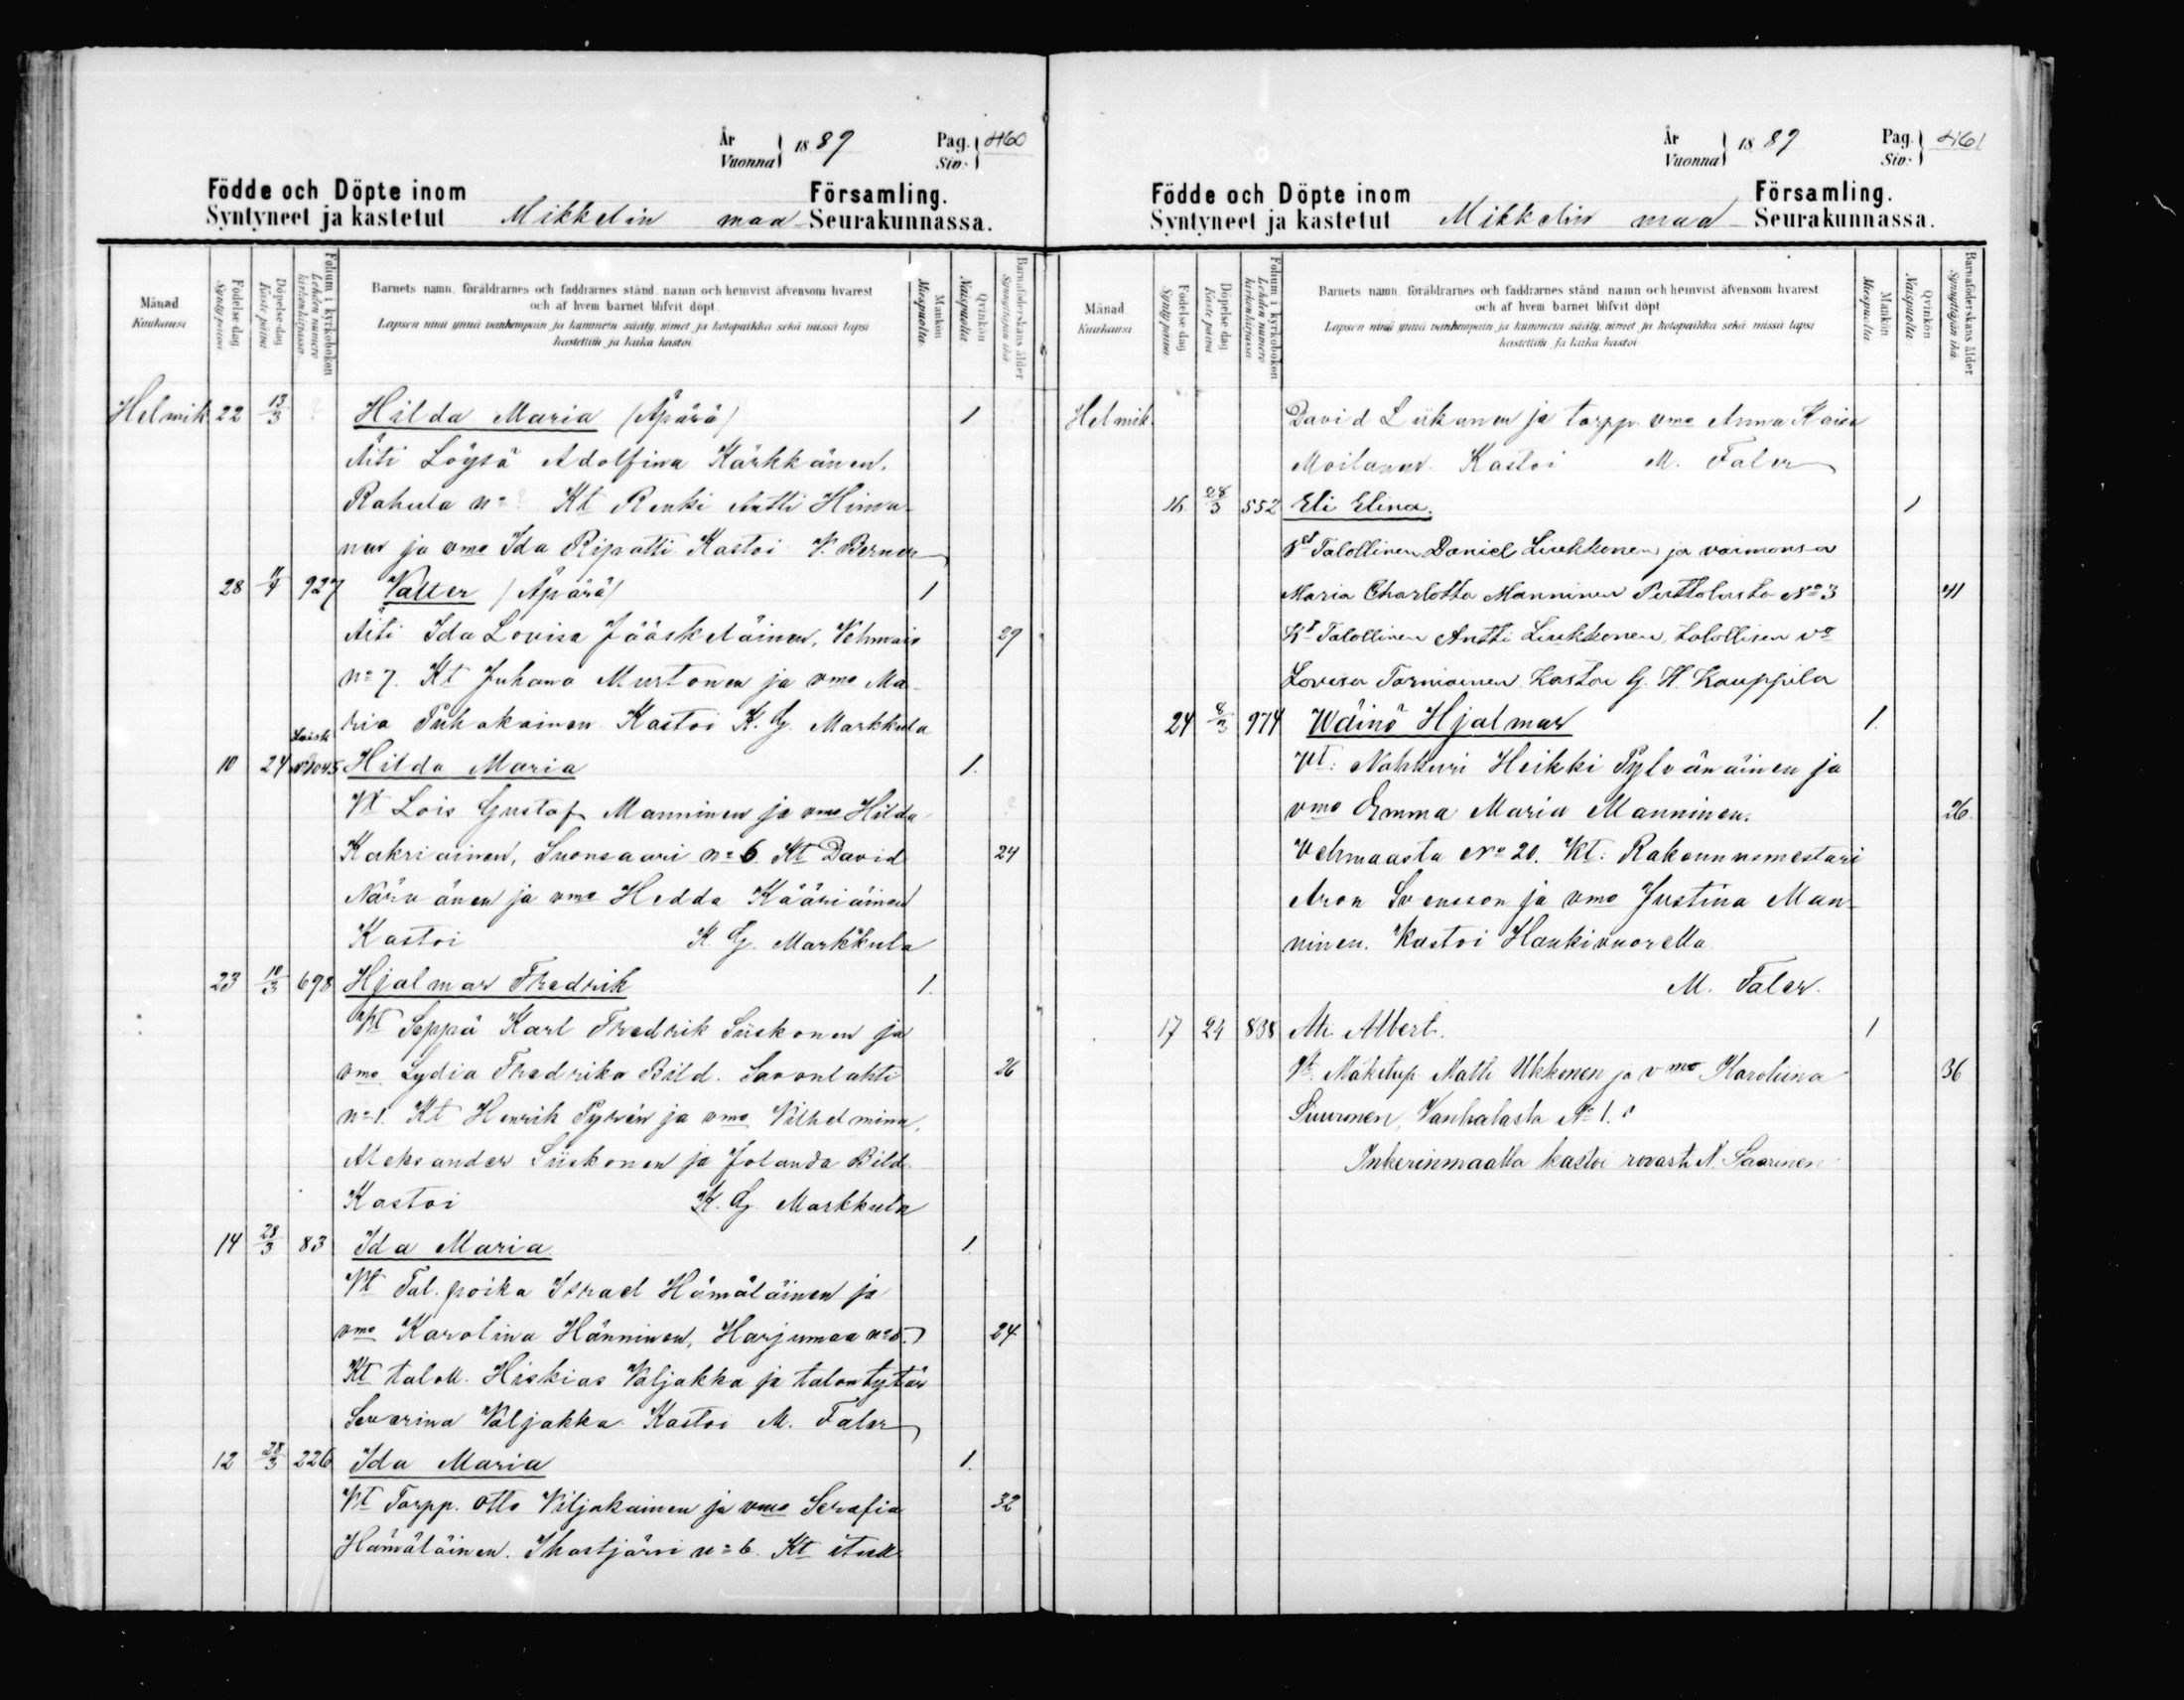 År
Vuonna 1889
Pag.
Siv. 460
Födde och Döpte inom Församling.
Syntyneet ja kastetut Mikkelin maa Seurakunnassa.
Månad
Kuukausi
Födelse dag
Synty päivä
Döpelse-dag
Kaste päivä
Folium i kyrkoboken
Lehden numero kirkonkirjassa
Barnets namn, föräldrarnes och faddrarnes stånd, namn och hemvist äfvensom hvarest
och af hvem barnet blifvit döpt.
Lapsen nimi ynnä vanhempain ja kummein sääty, nimet ja kotopaikka sekä missä lapsi
kastettiin ja kuka kastoi
Mankön
Miespuolta
Qvinkön
Naispuolta
Barnaföderskans ålder
Synnyttäjän ikä
Helmik. 22 13/3 Hilda Maria (Äpärä) 1
Äiti Löysä Adolfina Kärkkänen,
Rahula No ? Kt Renki Antti Hirva-
nen ja vmo Ida Ripatti Kastoi V. Berner
28 11/4 927 Valter (Äpärä) 1
Äiti Ida Lovisa Jääskeläinen, Vehmais 29
No 7. Kt Juhana Murtonen ja vmo Ma-
ria Puhakainen Kastoi K. G. Markkula
10 24 Hilda Maria 1.
Vt Lois Gustaf Manninen ja vmo Hilda
Kakriainen, Suonsaari No 6. Kt David 24
Närvänen ja vmo Hedda Kääriäinen
Kastoi K. G. Markkula
23 10/3 698 Hjalmar Fredrik 1.
Vt Seppä Karl Fredrik Siiskonen ja
vmo Lydia Fredrika Bild. Savonlahti 26
No 1. Kt Henrik Pyrén ja vmo Vilhelmina,
Aleksander Siiskonen ja Jolanda Bild.
Kastoi K. G. Markkula
14 28/3 83 Ida Maria 1.
Vt Tal. poika Israel Hämäläinen ja
vmo Karolina Hänninen, Harjumaa No 5. 24
Kt taloll. Hiskias Valjakka ja talontytär
Severina Valjakka. Kastoi M. Faler
12 28/3 226 Ida Maria 1.
Vt Torpp. Otto Viljakainen ja vmo Serafia 32
Hämäläinen. Ihastjärvi No 6. Kt itsell.
År
Vuonna 1889
Pag.
Siv. 461
Födde och Döpte inom Församling.
Syntyneet ja kastetut Mikkelin maa Seurakunnassa.
Månad
Kuukausi
Födelse dag
Synty päivä
Döpelse dag
Kaste päivä
Folium i kyrkoboken
Lehden numero kirkonkirjassa
Barnets namn, föräldrarnes och faddrarnes stånd, namn och hemvist äfvensom hvarest
och af hvem barnet blifvit döpt
Lapsen nimi ynnä vanhempain ja kummein sääty, nimet ja kotopaikka sekä missä lapsi
kastettiin ja kuka kastoi
Mankön
Miespuolta
Qvinkön
Naispuolta
Barnaföderskans ålder
Synnyttäjän ikä
Helmik. David Liukonen ja torpp. vmo Anna Kaisa
Moilanen. Kastoi M. Faler
16 28/3 552 Eli Elina. 1
Vt Talollinen Daniel Liukkonen ja vaimonsa
Maria Charlotta Manninen Perttolasta No 3 41
Kt Talollinen Antti Liukkonen, talollisen vo
Lovisa Torniainen. Kastoi G. H. Kauppila
24 8/3 974 Wäinö Hjalmar 1.
Vt: Nahkuri Heikki Pylvänäinen ja
vmo Emma Maria Manninen. 26.
Vehmaasta No 20. Kt: Rakennusmestari
Aron Svensson ja vmo Justina Man-
ninen. Kastoi Haukivuorella
M. Faler.
17 24 838 Albert. 1
Vt. Mäkitup. Matti Ukkonen ja vmo Karoliina 36
Suuronen, Vanhalasta No 1.
Inkerinmaalla kastoi rovasti N. Saarinen